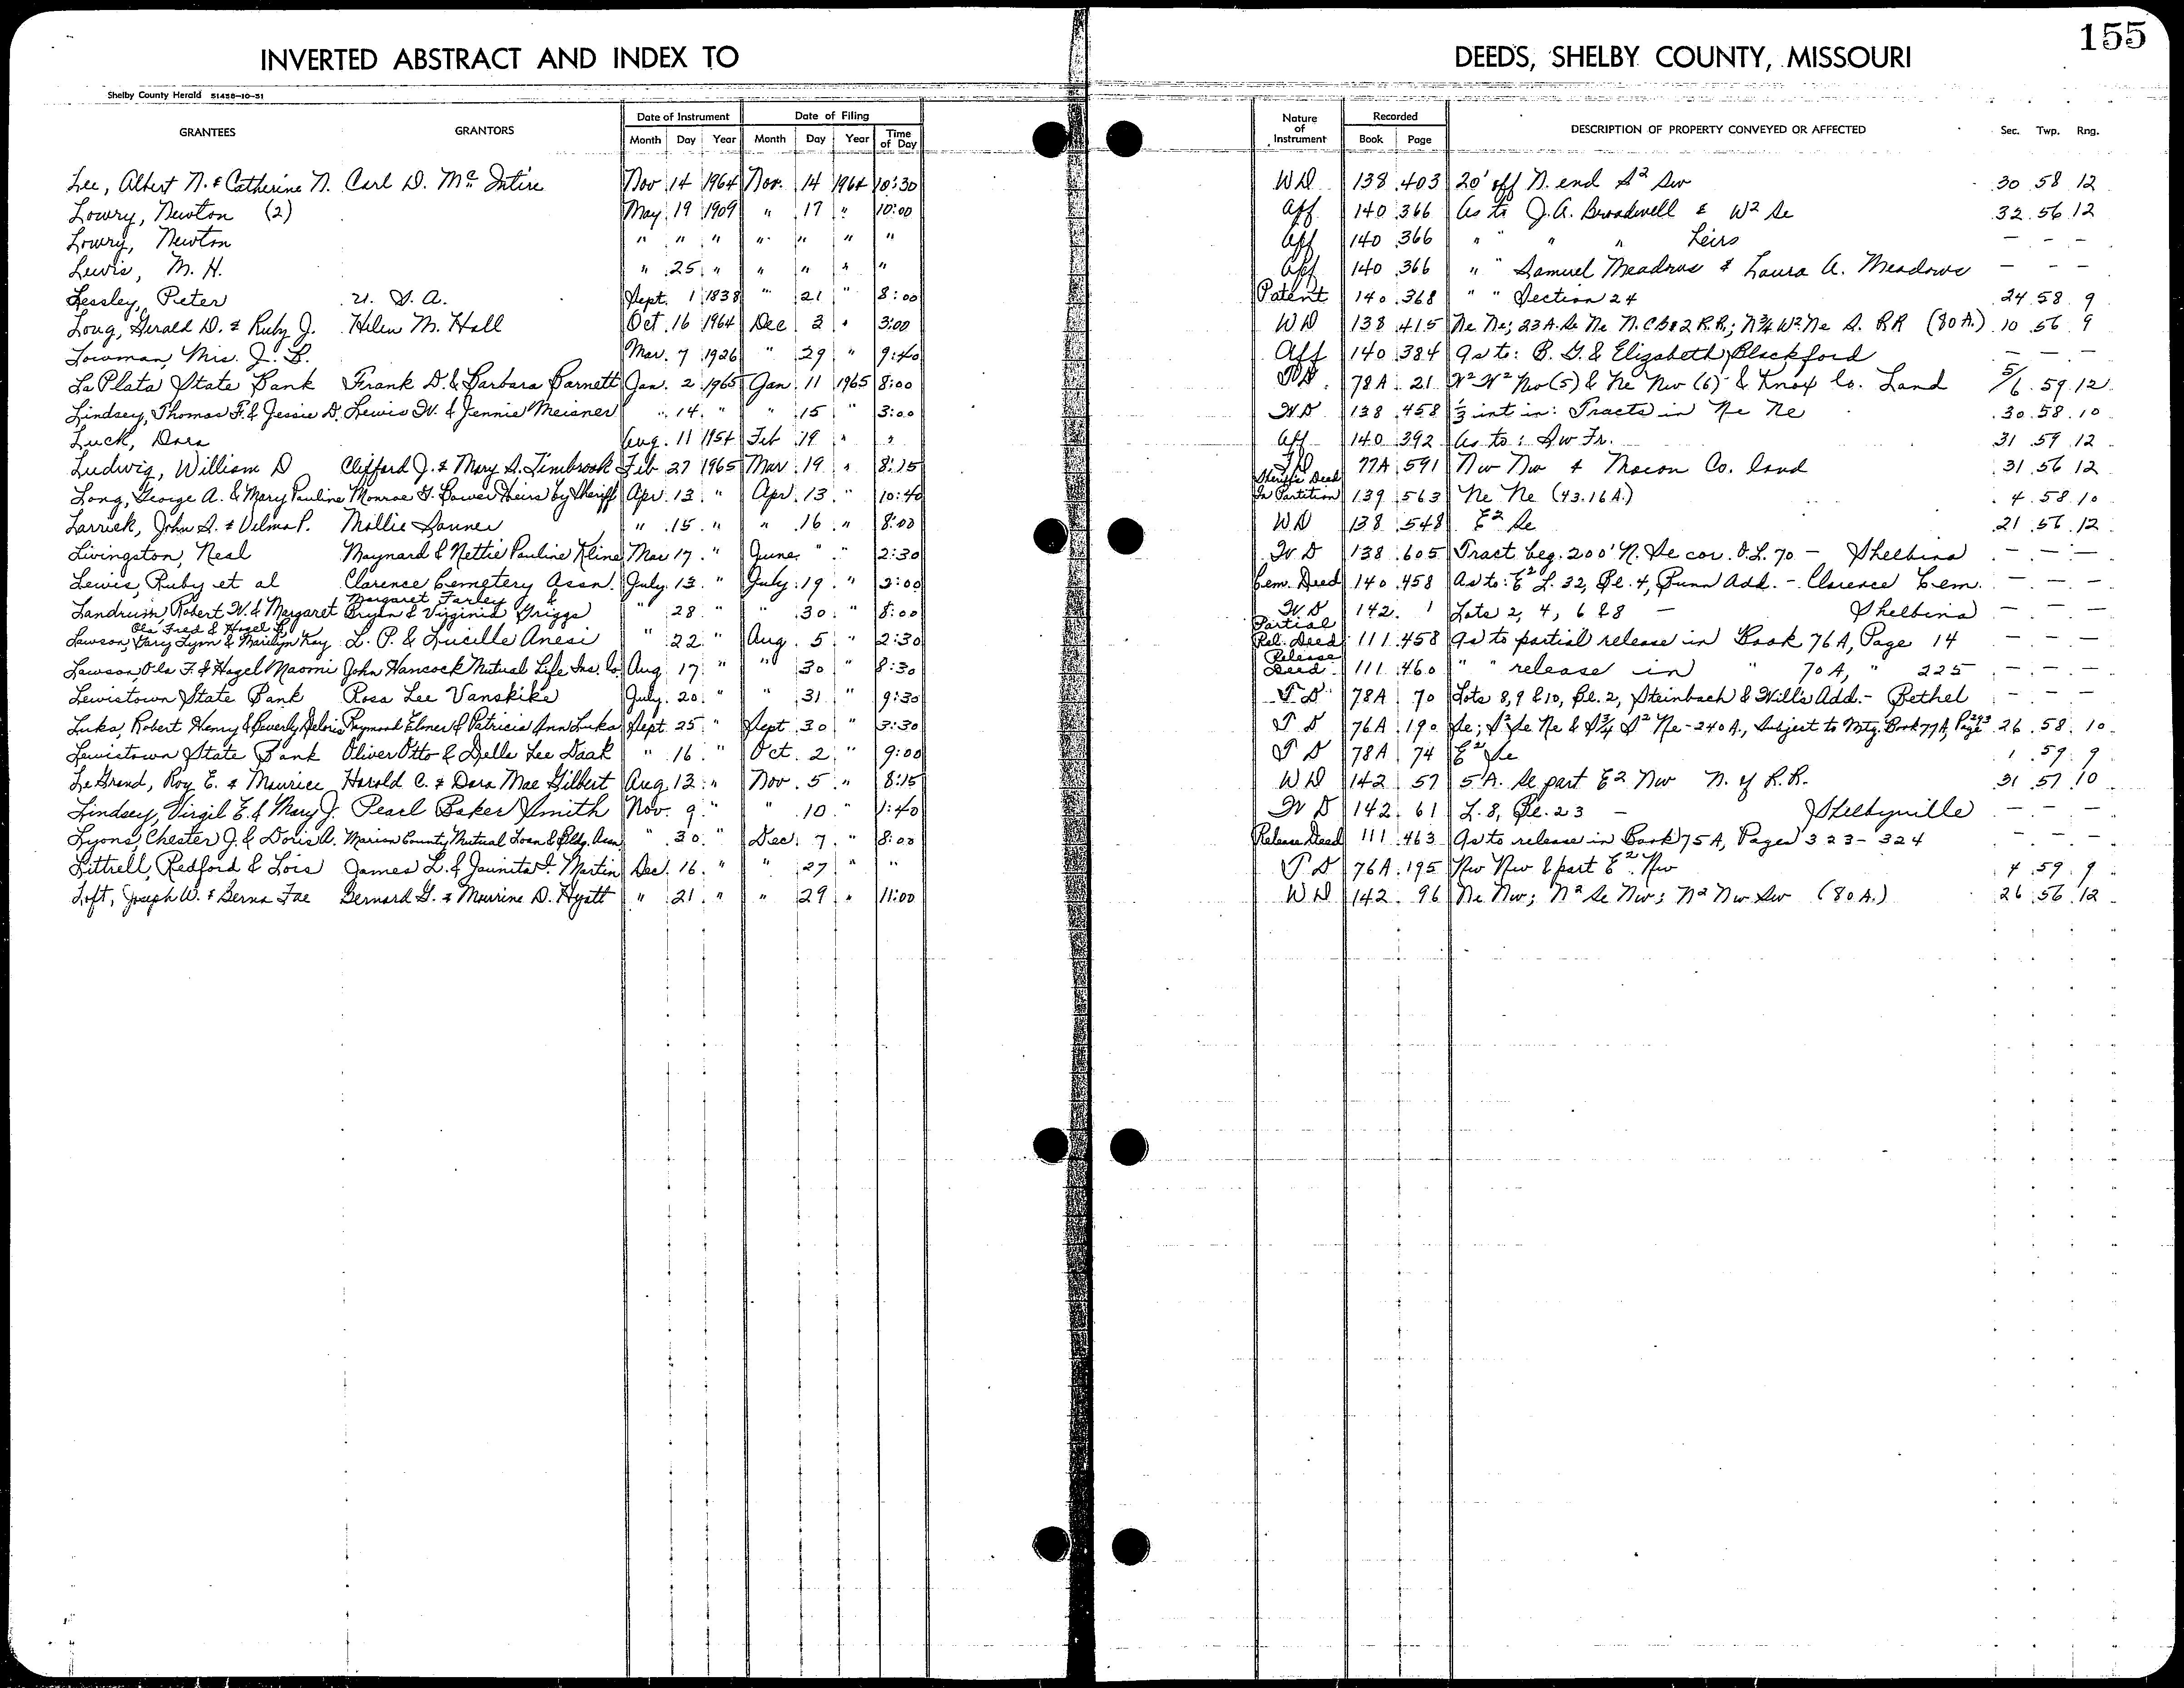 155
INVERTED ABSTRACT AND INDEX TO DEEDS, SHELBY COUNTY, MISSOURI
Shelby County Herald 51458-10-51
GRANTEES GRANTORS Date of Instrument Date of Filing Nature of Instrument Recorded DESCRIPTION OF PROPERTY CONVEYED OR AFFECTED Sec. Twp. Rng.
Month Day Year Month Day Year Time of Day Book Page
Lee, Albert N. & Catherine N. Carl D. Mc Intire Nov 14 1964 Nov. 14 1964 10:30 WD 138 403 20' off N. end S2 Sw 30 58 12
Lowry, Newton (2) May 19 1909 " 17 " 10:00 Aff 140 366 As to J.A. Broadwell & W2 Se 32 56 12
Lowry, Newton " " " " " " " Aff 140 366 " " " " Heirs — — —
Lewis, M. H. " 25 " " " " " Aff 140 366 " " Samuel Meadows & Laura A. Meadows — — —
Lessley, Peter U. S. A. Sept. 1 1838 " 21 " 8:00 Patent 140 368 " " Section 24 24 58 9
Long, Gerald D. & Ruby J. Helen M. Hall Oct. 16 1964 Dec 3 " 3:00 WD 138 415 Ne Ne; 23 A. Se Ne N. CB&2 R.R.; N3/4 W2 Ne S. RR (80 A.) 10 56 9
Lowman, Mrs. J. B. Mar. 7 1926 " 29 " 9:40 Aff 140 384 As to: B. G. & Elizabeth Blackford — — —
La Plata State Bank Frank D. & Barbara Barnett Jan. 2 1965 Jan. 11 1965 8:00 TD 78A 21 W2 W2 Nw (5) & Ne Nw (6) & Knox Co. Land 5/6 59 12
Lindsey, Thomas F. & Jessie D. Lewis W. & Jennie Meisner " 14 " " 15 " 3:00 WD 138 458 1/3 int in: Tracts in Ne Ne 30 58 10
Luck, Dora Aug. 11 1954 Feb 19 " " Aff 140 392 As to: Sw Fr. 31 59 12
Ludwig, William D Clifford J. & Mary S. Timbrook Feb 27 1965 Mar 19 " 8:15 TD 77A 591 Nw Nw & Macon Co. land 31 56 12
Long, George A. & Mary Pauline Monroe G. Bower Heirs by Sheriff Apr. 13 " Apr. 13 " 10:40 Sheriff's Deed In Partition 139 563 Ne Ne (43.16 A.) 4 58 10
Larrick, John S. & Velma P. Mollie Sanner " 15 " " 16 " 8:00 WD 138 548 E2 Se 21 56 12
Livingston, Neal Maynard & Nettie Pauline Kline Mar 17 " June " " 2:30 WD 138 605 Tract beg. 200' N. Se cor. O.L. 70 — Shelbina — — —
Lewis, Ruby et al Clarence Cemetery Assn. July 13 " July 19 " 2:00 Cem. Deed 140 458 As to: E2 L. 32, Bl. 4, Bunn Add. - Clarence Cem. — — —
Landrum, Robert W. & Margaret Margaret Farley & Bryan & Virginia Griggs " 28 " " 30 " 8:00 WD 142 1 Lots 2, 4, 6 & 8 — Shelbina — — —
Ola Fred & Hazel L.
Lawson, Gary Lynn & Marilyn Kay L. P. & Lucille Anesi " 22 " Aug. 5 " 2:30 Partial Rel. Deed 111 458 As to partial release in Book 76A, Page 14 — — —
Lawson, Ola F. & Hazel Naomi John Hancock Mutual Life Ins. Co. Aug 17 " " 30 " 8:30 Release Deed 111 460 " " release in " 70A, " 225 — — —
Lewistown State Bank Rosa Lee Vanskike July 20 " " 31 " 9:30 TD 78A 70 Lots 8, 9 & 10, Bl. 2, Steinbach & Will's Add. - Bethel — — —
Luka, Robert Henry & Beverly Deloris Raymond Elmer & Patricia Ann Luka Sept. 25 " Sept 30 " 3:30 TD 76A 190 Se; S2 Se Ne & S3/4 S2 Ne - 240 A., Subject to Mtg. Book 77A, Page 293 26 58 10
Lewistown State Bank Oliver Otto & Della Lee Daak " 16 " Oct. 2 " 9:00 TD 78A 74 E2 Se 1 59 9
Le Grand, Roy E. & Maurice Harold C. & Dora Mae Gilbert Aug 13 " Nov. 5 " 8:15 WD 142 57 5 A. Se part E2 Nw N. of R.R. 31 57 10
Lindsey, Virgil E. & Mary J. Pearl Baker Smith Nov. 9 " " 10 " 1:40 WD 142 61 L. 8, Bl. 23 — Shelbyville — — —
Lyons, Chester J. & Doris A. Marion County Mutual Loan & Bldg. Assn " 30 " Dec. 7 " 8:00 Release Deed 111 463 As to release in Book 75A, Pages 323-324 — — —
Littrell, Redford & Lois James L. & Jaunita I. Martin Dec. 16 " " 27 " " TD 76A 195 Nw Nw & part E2 Nw 4 59 9
Loft, Joseph W. & Berna Fae Bernard G. & Maurine D. Hyatt " 21 " " 29 " 11:00 WD 142 96 Ne Nw; N2 Se Nw; N2 Nw Sw (80 A.) 26 56 12